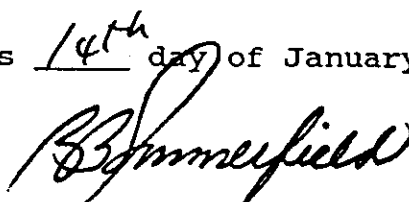 s 14th day of January
BBSommerfield